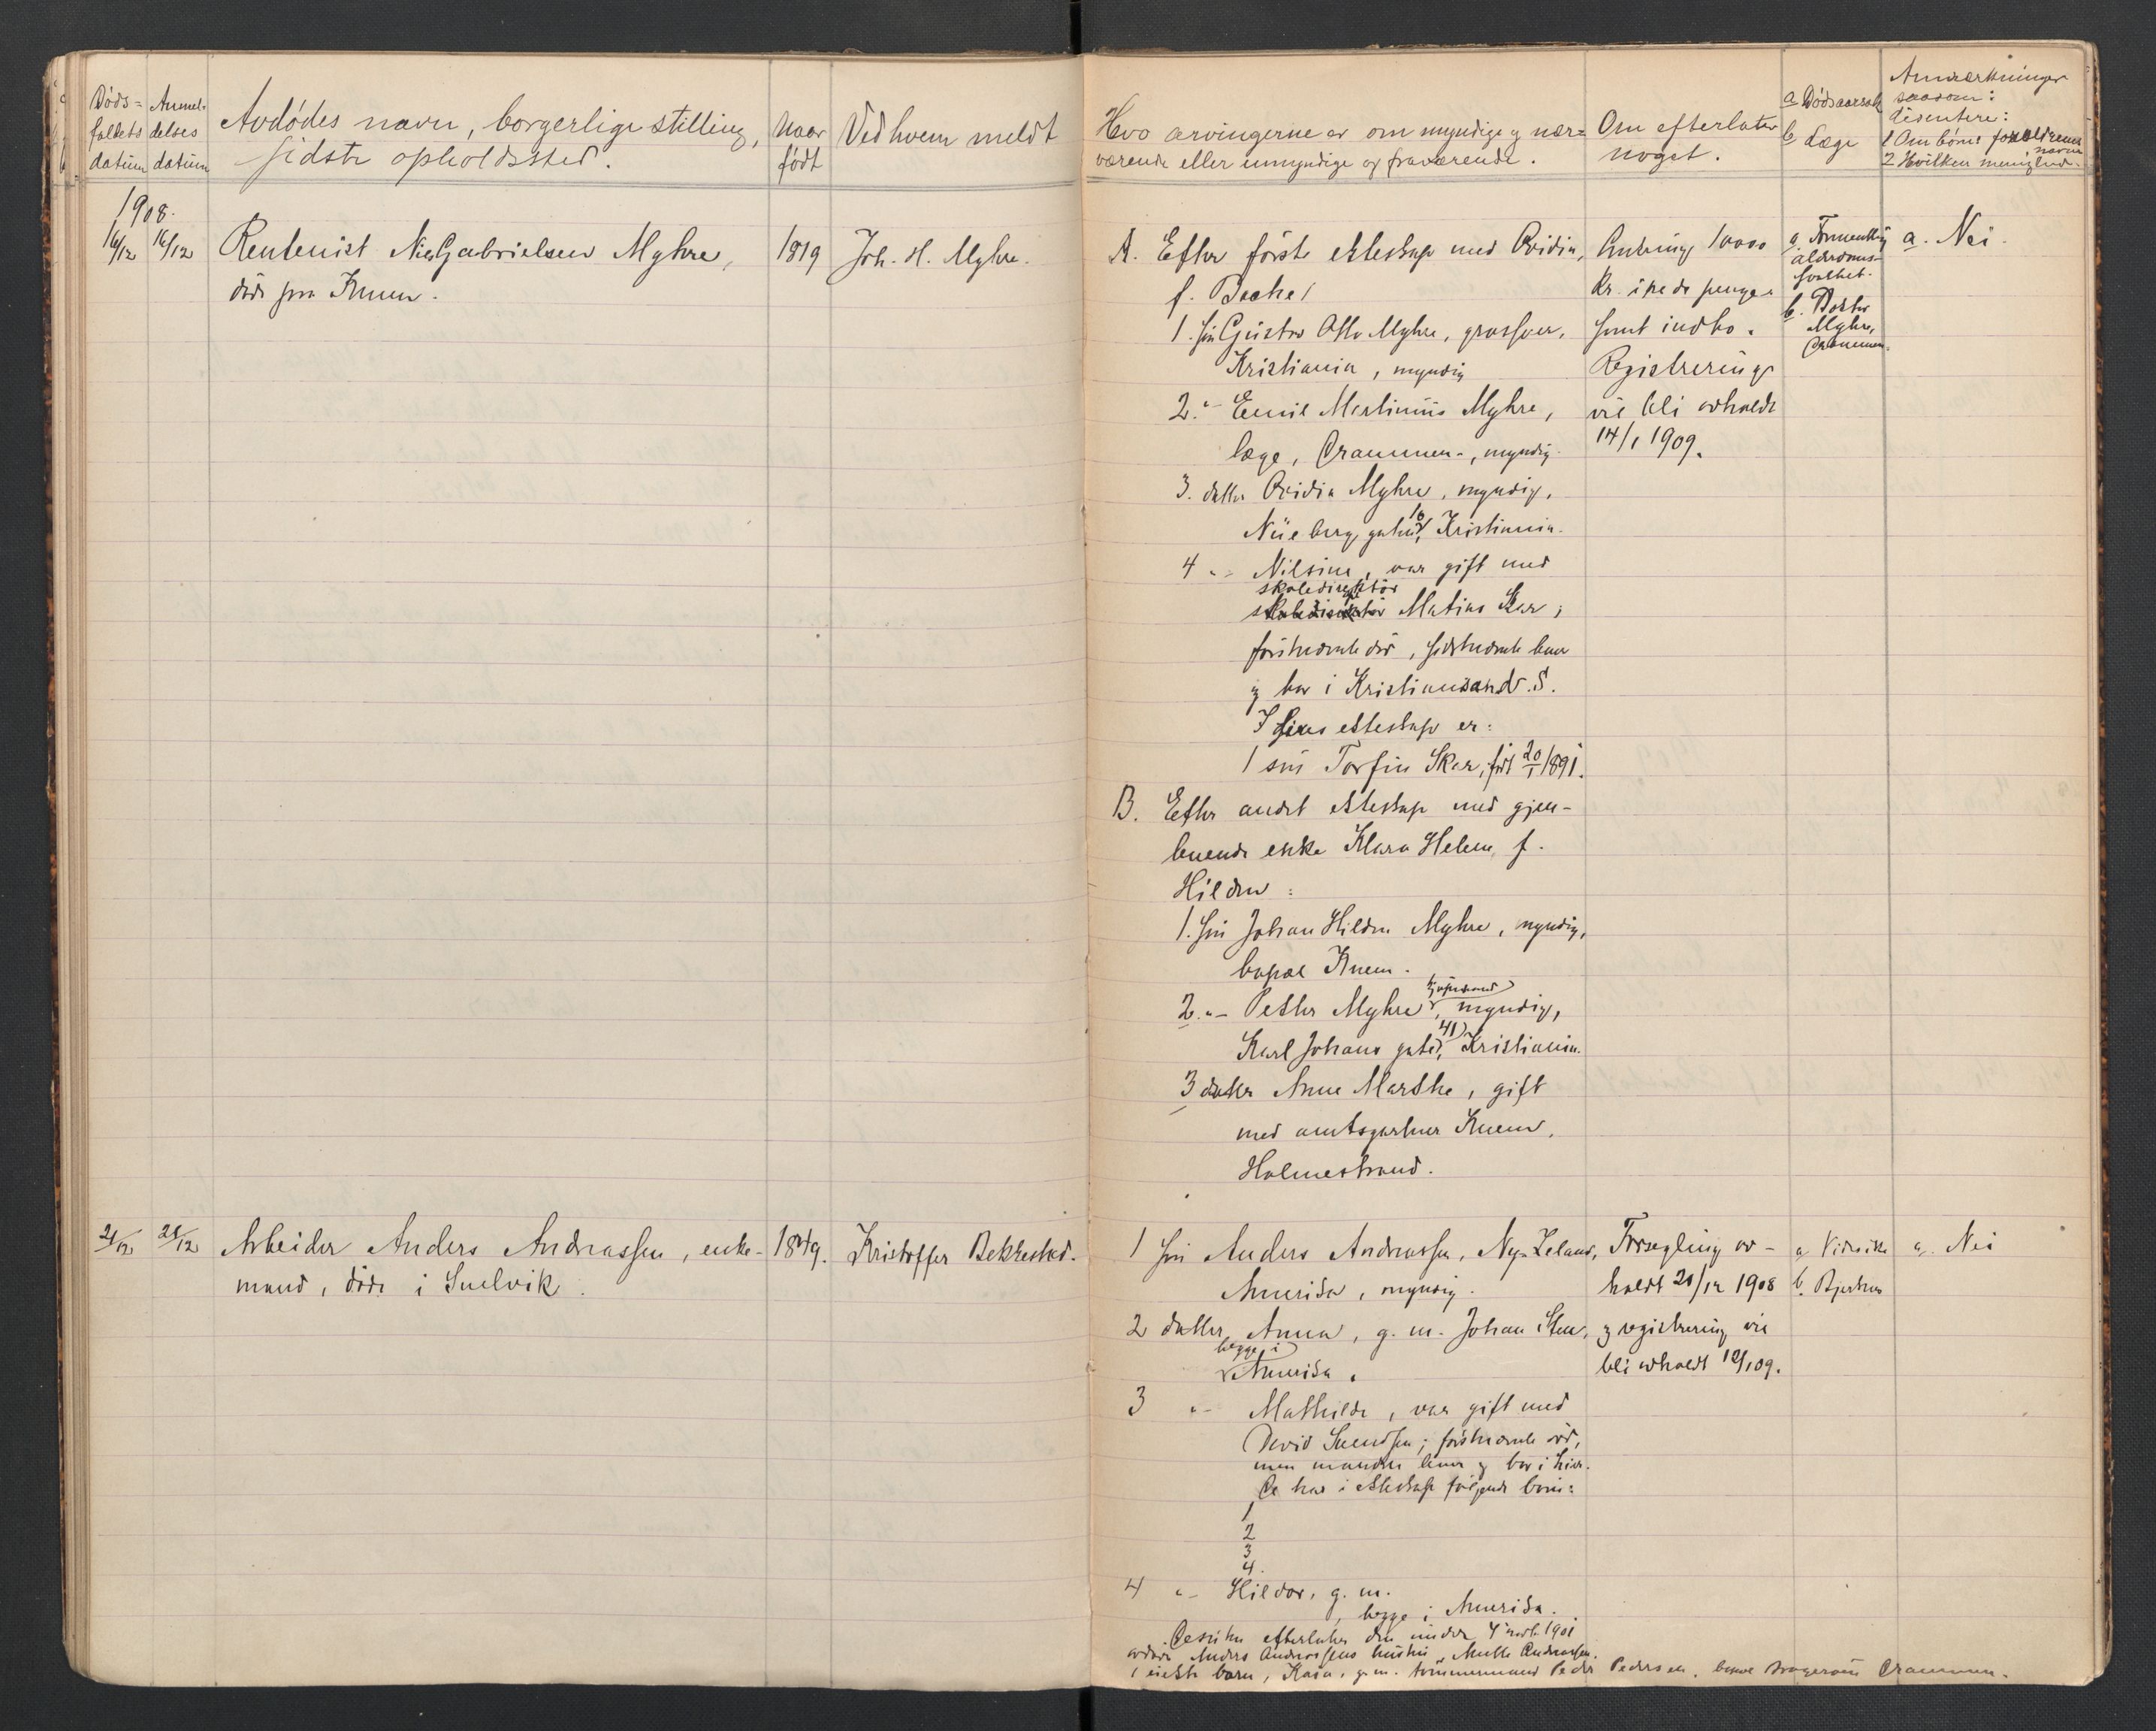 Døds=
faldets
datum
Anmel-
delses
datum
Avdødes navn, borgerlige stilling,
sidste opholdssted.
Naar
født
Ved hvem meldt
Hvo arvingerne er om myndige og nær=
værende eller umyndige og fraværende.
Om efterlater
noget.
a Dødsaarsak
b Læge
Anmærkninger
saasom:
disentere:
1 Om børns forældrenes
navne
2 Hvilken menighed.
1908.
16/12 16/12 Rentenist Nils Gabrielsen Myhre, 1819 Joh. H. Myhre.
døde paa Knem.
A. Efter første ekteskap med Ovidia,
f. Bache
1. søn Gustav Otto Myhre, grosserer,
Kristiania, myndig
2. "- Emil Martinius Myhre,
læge, Drammen, myndig.
3. datter Ovidia Myhre, myndig,
gaten 18, Kristiania.
4 "- Nilsine, var gift med
skoledirektør
skoledirektør Matias Skar;
førstnævnte død, sidstnævnte lever
og bor i Kristiansand S.
I deres ekteskap er:
1 søn Torfin Skar, født 20/1 1891.
B. Efter andet ekteskap med gjen-
levende enke Klara Helene, f.
Hilden:
1. søn Johan Hilden Myhre, myndig,
bopæl Knem.
2. "- Petter Myhre, kjøpmand, myndig,
Karl Johans gate 41, Kristiania.
3 datter Anne Marthe, gift
med amtsgartner Knem,
Holmestrand.
Omkring 10000
kr. i rede penger
samt indbo.
Registrering
vil bli avholdt
14/1 1909.
a. Formentlig
alderdoms-
svakhet.
b. Doktor
Myhre,
Drammen.
a. Nei.
21/12 21/12 Arbeider Anders Andreassen, enke- 1849. Kristoffer Bekkestad.
mand, døde i Svelvik.
1 søn Anders Andreassen, Ny-Zeland,
Amerika, myndig.
2 datter Anna, g. m. Johan Sten,
begge i
Amerika.
3 "- Mathilde, var gift med
David Svendsen; førstnævnte død,
men manden lever og bor i
De har i ekteskap følgende børn:
1
2
3
4.
4 "- Hildar, g. m.
, begge i Amerika.
Desuten efterlater den under 4 1901
avdøde Anders Andreassens hustru Andreassen,
1 eneste barn, Kaia, g. m. tømmermand Peder Pedersen, Drammen.
Forsegling av-
holdt 21/12 1908
og registrering vil
bli avholdt 12/1 09.
a
b. Bjerknes
a. Nei